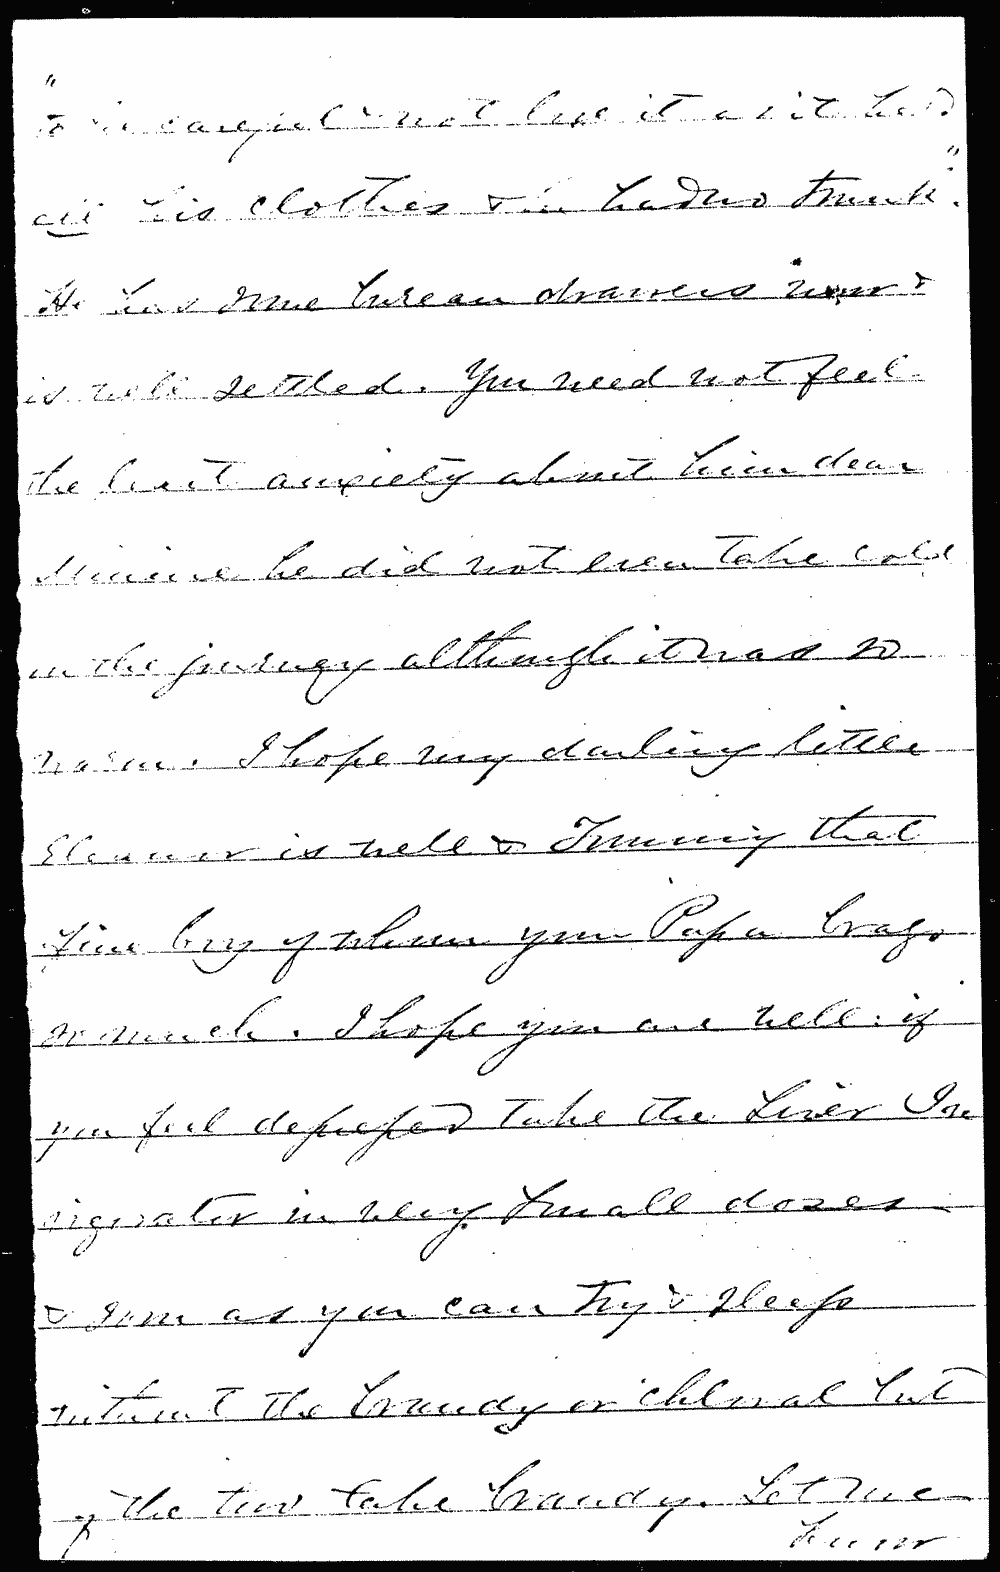 "
to be careful & not lose it as it had
all his clothes & he had no trunk".
He has some bureau drawers now &
is well settled. You need not feel
the least anxiety about him dear
Minnie he did not even take cold
in the journey although it was so
warm. I hope my darling little
Eleanor is well & Jimmy that
fine boy of whom your Papa brags
so much. I hope you are well: if
you feel depressed take the Liver In
vigorator in very small doses
& soon as you can try & sleep
without the brandy or chloral but
of the two take brandy. Let me
know